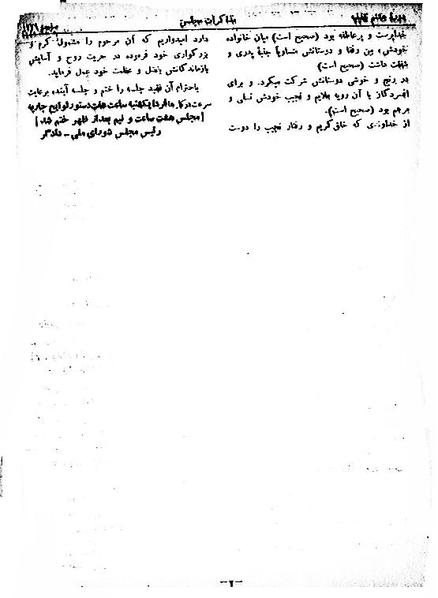 مذاکرات مجلس
خداپرست و پرعاطفه بود (صحیح است) میان خانواده
خودش، بین رفقا و دوستانش متساویاً جنبهٔ پدری و
شفقت داشت (صحیح است)
در رنج و خوشی دوستانش شرکت میکرد. و برای
افسردگان با آن رویه ملایم و نجیب خودش تسلی و
مرهم بود (صحیح است).
از خداوندی که خلق کریم و رفتار نجیب را دوست
دارد امیدواریم که آن مرحوم را مشمول کرم و
بزرگواری خود فرموده در حریت روح و آسایش
بازماندگانش بفضل و عظمت خود عدل فرماید.
باحترام آن فقید جلسه را ختم و جلسه آینده برعایت
سرعت در کارها فردا یکشنبه ساعت هفت دستور لوایح جاریه
[مجلس هفت ساعت و نیم بعد از ظهر ختم شد]
رئیس مجلس شورای ملی - دادگر